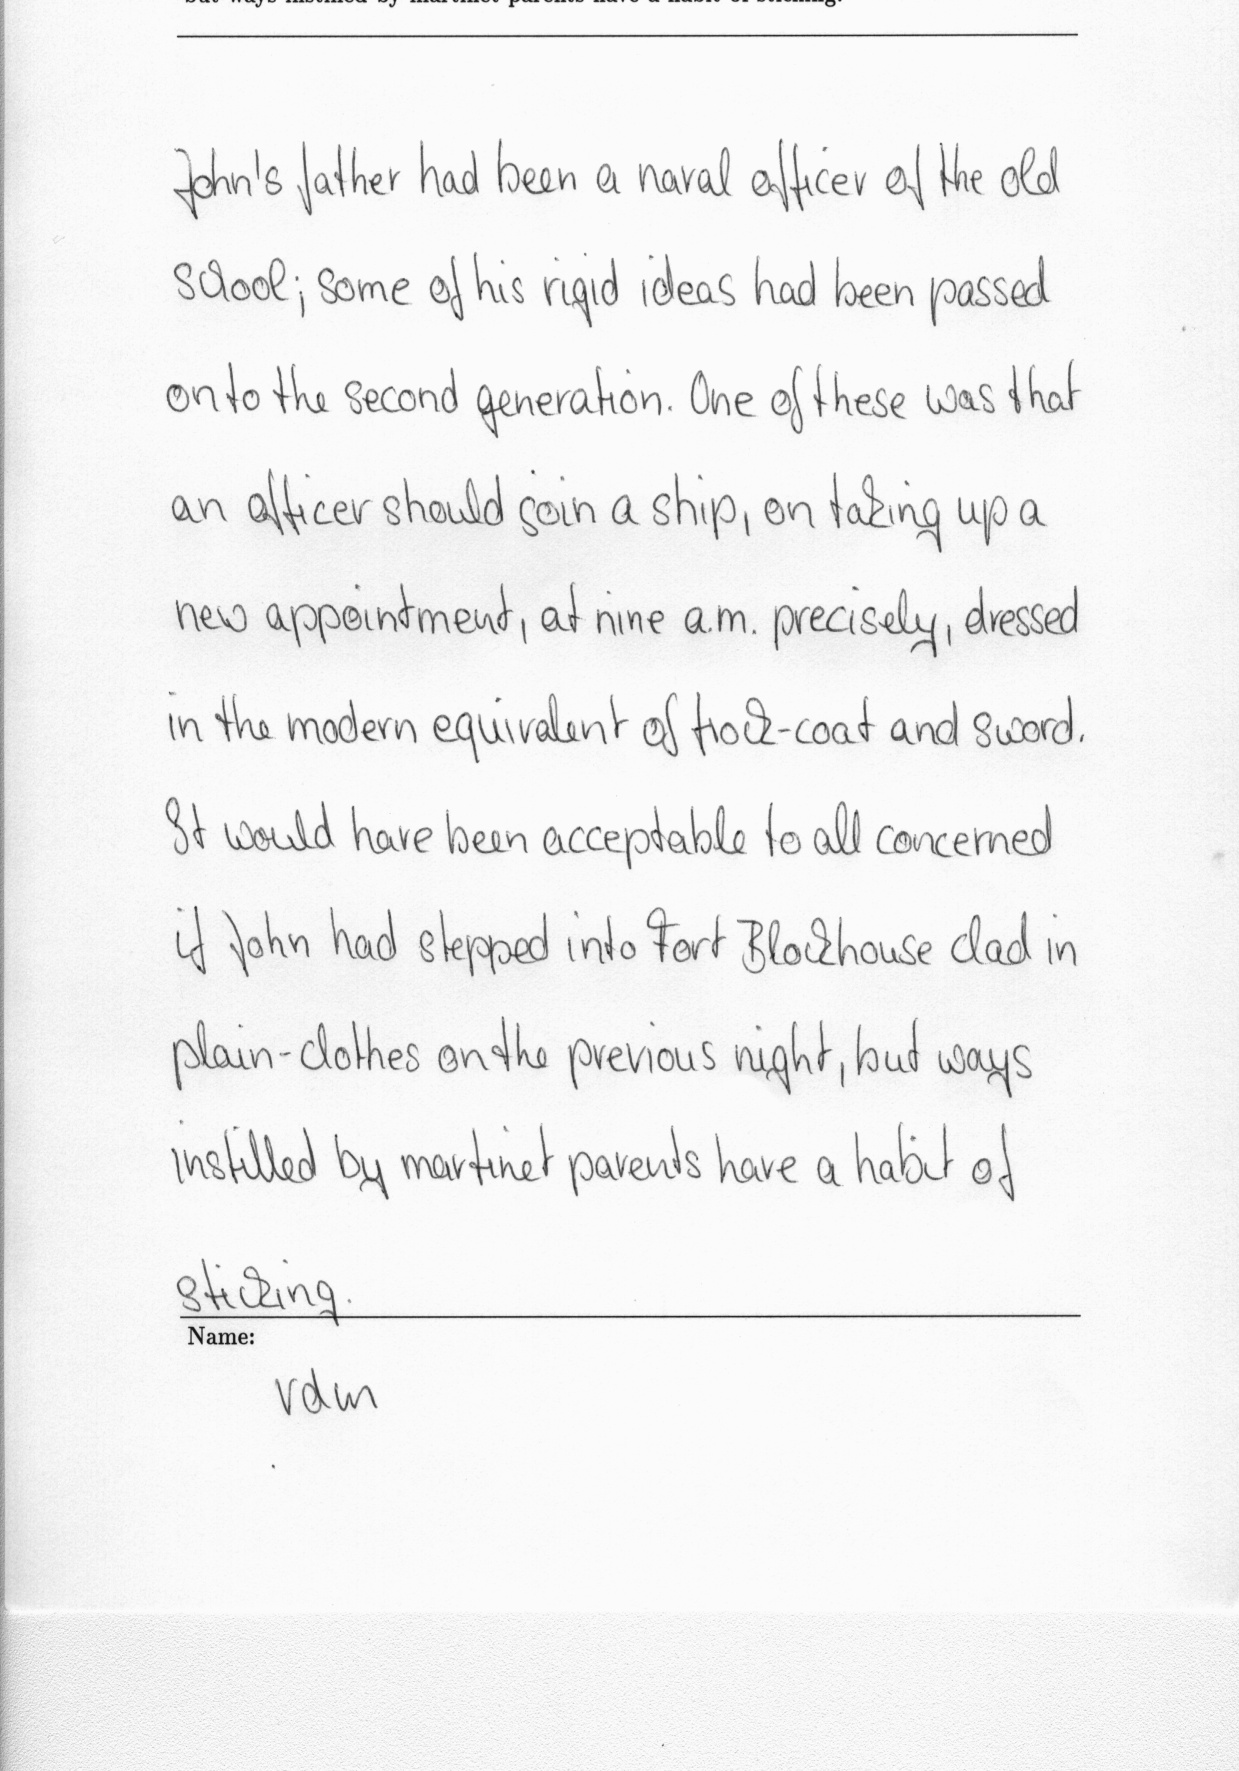 but ways instilled by martinet parents have a habit of sticking.
John's father had been a naval officer of the old
school; some of his rigid ideas had been passed
on to the second generation. One of these was that
an officer should join a ship, on taking up a
new appointment, at nine a.m. precisely, dressed
in the modern equivalent of frock-coat and sword.
It would have been acceptable to all concerned
if John had stepped into Fort Blockhouse clad in
plain-clothes on the previous night, but ways
instilled by martinet parents have a habit of
sticking.
Name: